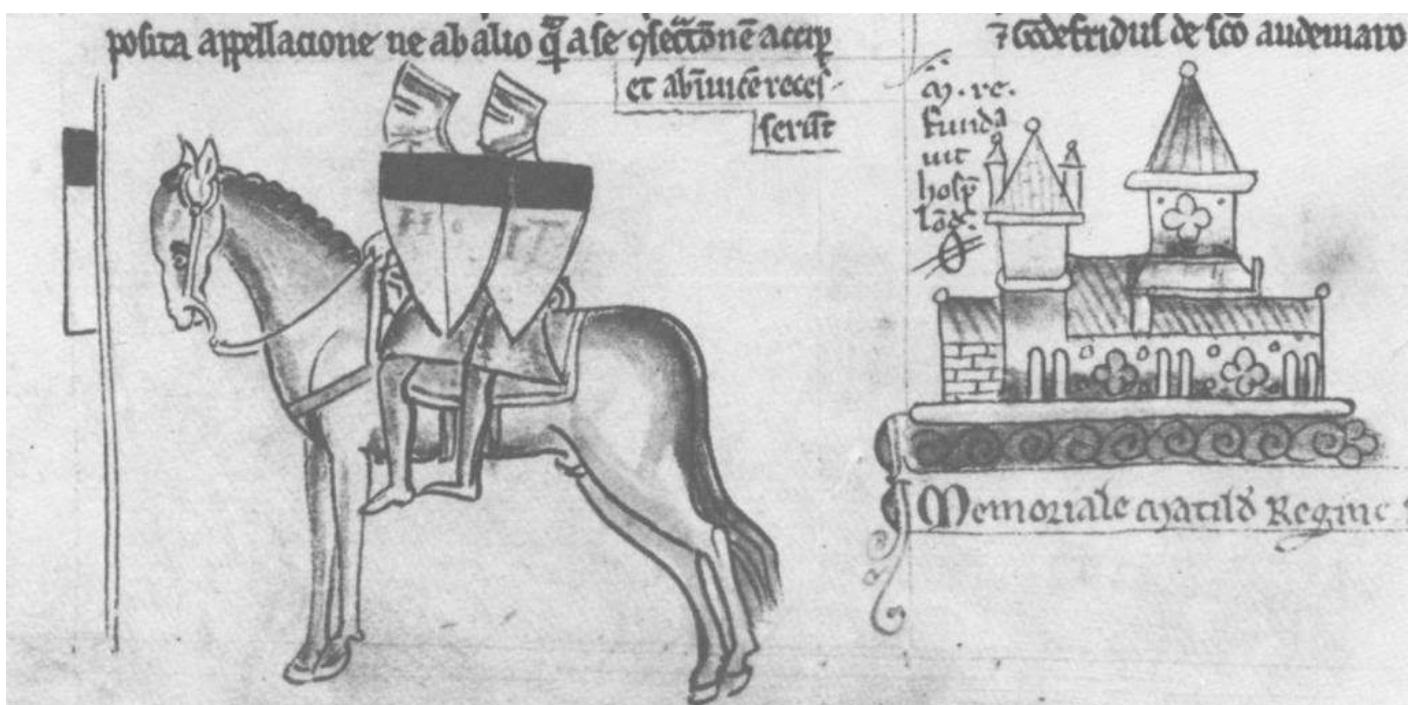 posita appellacione ne ab alio q̄ a se ɔsecc̄onē accip̄
et abīuicē reces
serūt
⁊ Godefridus de sc̄o audemaro
M . re .
funda
uit
hosp̄
Lōd
Memoriale Matild Regine